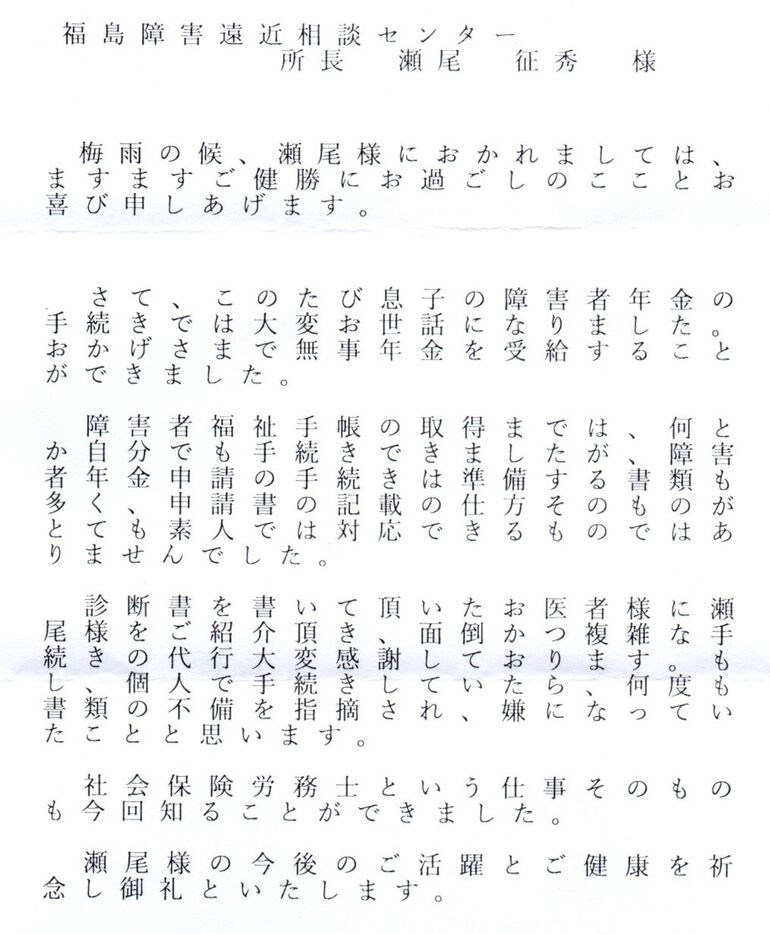 福島障害遠近相談センター
所長　瀬尾　征秀　様
梅雨の候、瀬尾様におかれましては、
ますますご健勝にお過ごしのこことお
喜び申しあげます。
さて、このたび息子の障害者年金の
手続きでは大変お世話になりました。
おかげさまで無事年金を受給すること
ができました。
障害者福祉手帳の取得までは、何と
か自分でも手続きできましたが、障害
者年金申請の手続きは準備する書類も
多く、申請書の記載の仕方そのものが
とても素人では対応できるものではあ
りませんでした。
診断書を書いて頂いたお医者様に瀬
尾様をご紹介頂き、面倒かつ複雑な手
続きの代行大変感謝しております。もも
し、個人で手続きしていたら、何度も
書類の不備を指摘され、嫌になってい
たことと思います。
社会保険労務士という仕事そのもの
も今回知ることができました。
瀬尾様の今後のご活躍とご健康を祈
念し御礼といたします。